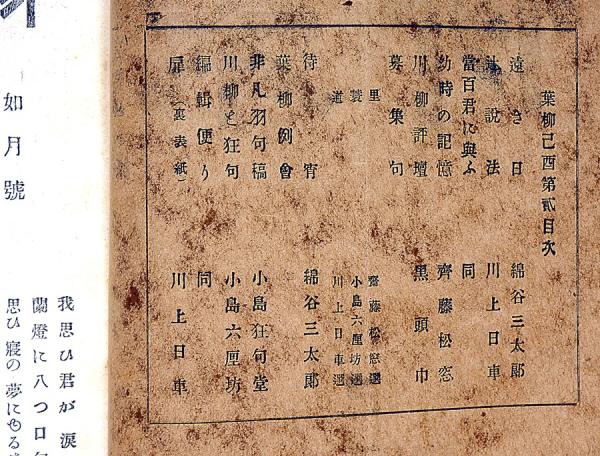 葉柳己酉第貳目次
遠き日 綿谷三太郎
辻説法 川上日車
當百君に與ふ 同
幼時の記憶 齊藤松窓
川柳評壇 黒頭巾
募集句
里 齋藤松窓選
簑 小島六厘坊選
道 川上日車選
待宵 綿谷三太郎
葉柳例會
非凡羽句稿 小島狂句堂
川柳と狂句 小島六厘坊
編輯便り 同
扉(裏表紙) 川上日車
如月號
我思ひ君が涙
蘭燈に八つ口
思ひ寢の夢にもる